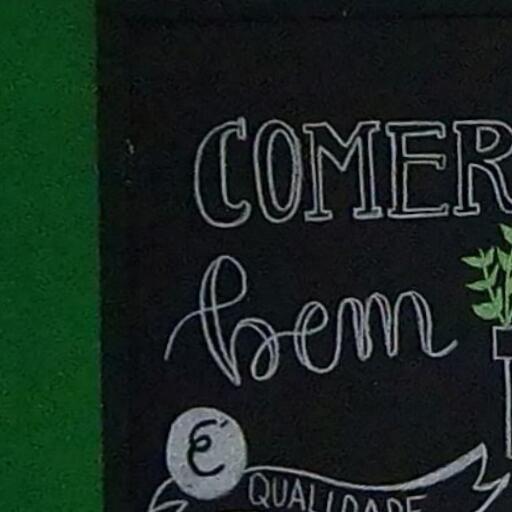 COMER
bem
É
QUALIDADE